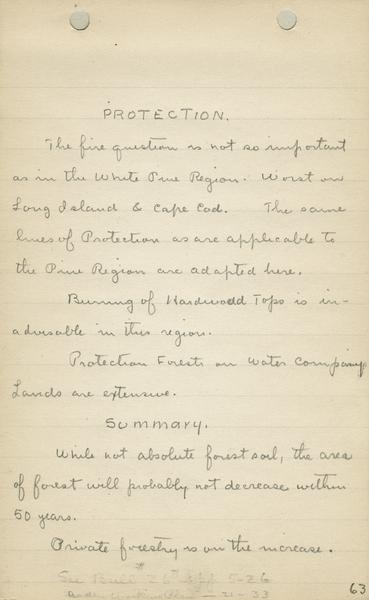 PROTECTION.
The fire question is not so important
as in the White Pine Region. Worst on
Long Island & Cape Cod. The same
lines of Protection as are applicable to
the Pine Region are adapted here.
Burning of Hardwood Tops is in-
advisable in this region.
Protection Forests on Water Company
Lands are extensive.
Summary.
While not absolute forest soil, the area
of forest will probably not decrease within
50 years.
Private forestry is on the increase.
See Bull #26 pp 5-26
21-33
63